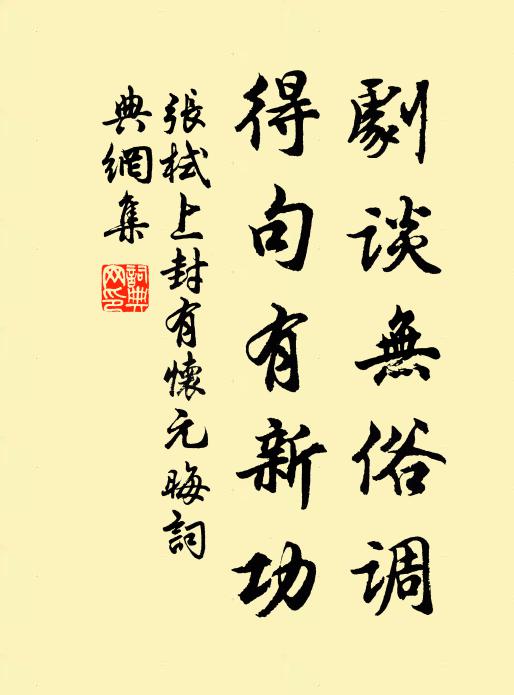 劇谈無俗调
得句有新功
張栻上封有懷元晦詞
典網集
詞典网印